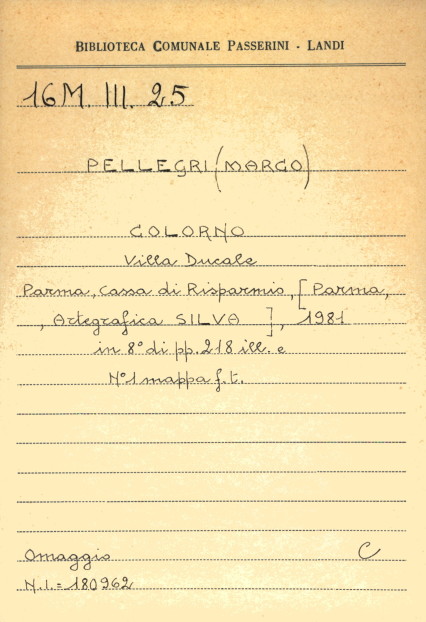 BIBLIOTECA COMUNALE PASSERINI - LANDI
16M. III. 25
PELLEGRI (MARCO)
COLORNO
Villa Ducale
Parma, Cassa di Risparmio, [Parma,
, Artegrafica SILVA ], 1981
in 8° di pp. 218 ill. e
N°1 mappa f. t.
Omaggio C
N.I. = 180962